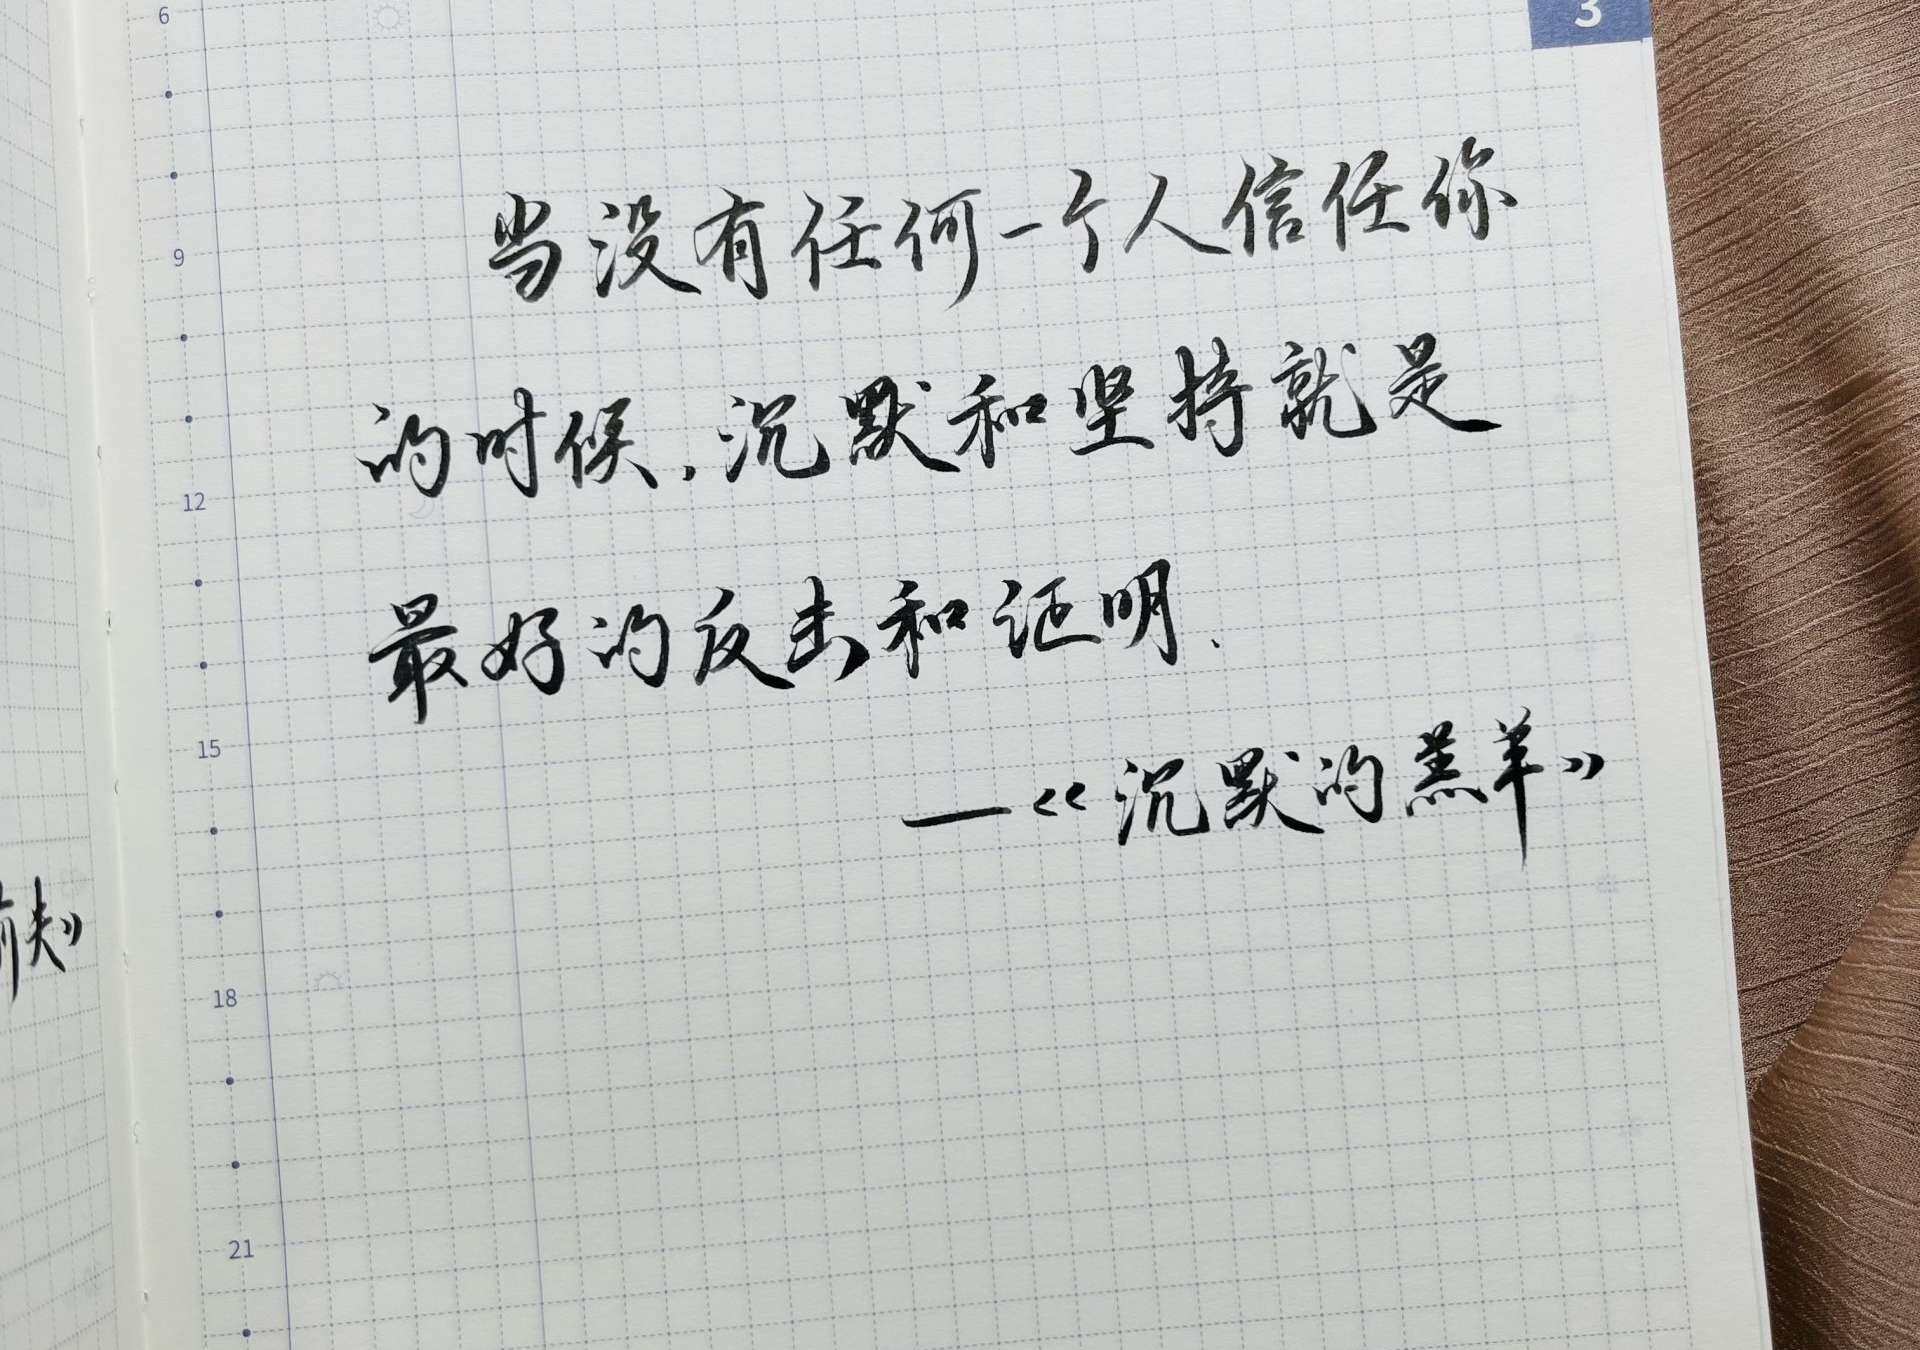 3
6
9
12
15
18
21
当没有任何一个人信任你
的时候,沉默和坚持就是
最好的反击和证明.
—《沉默的羔羊》
夫》